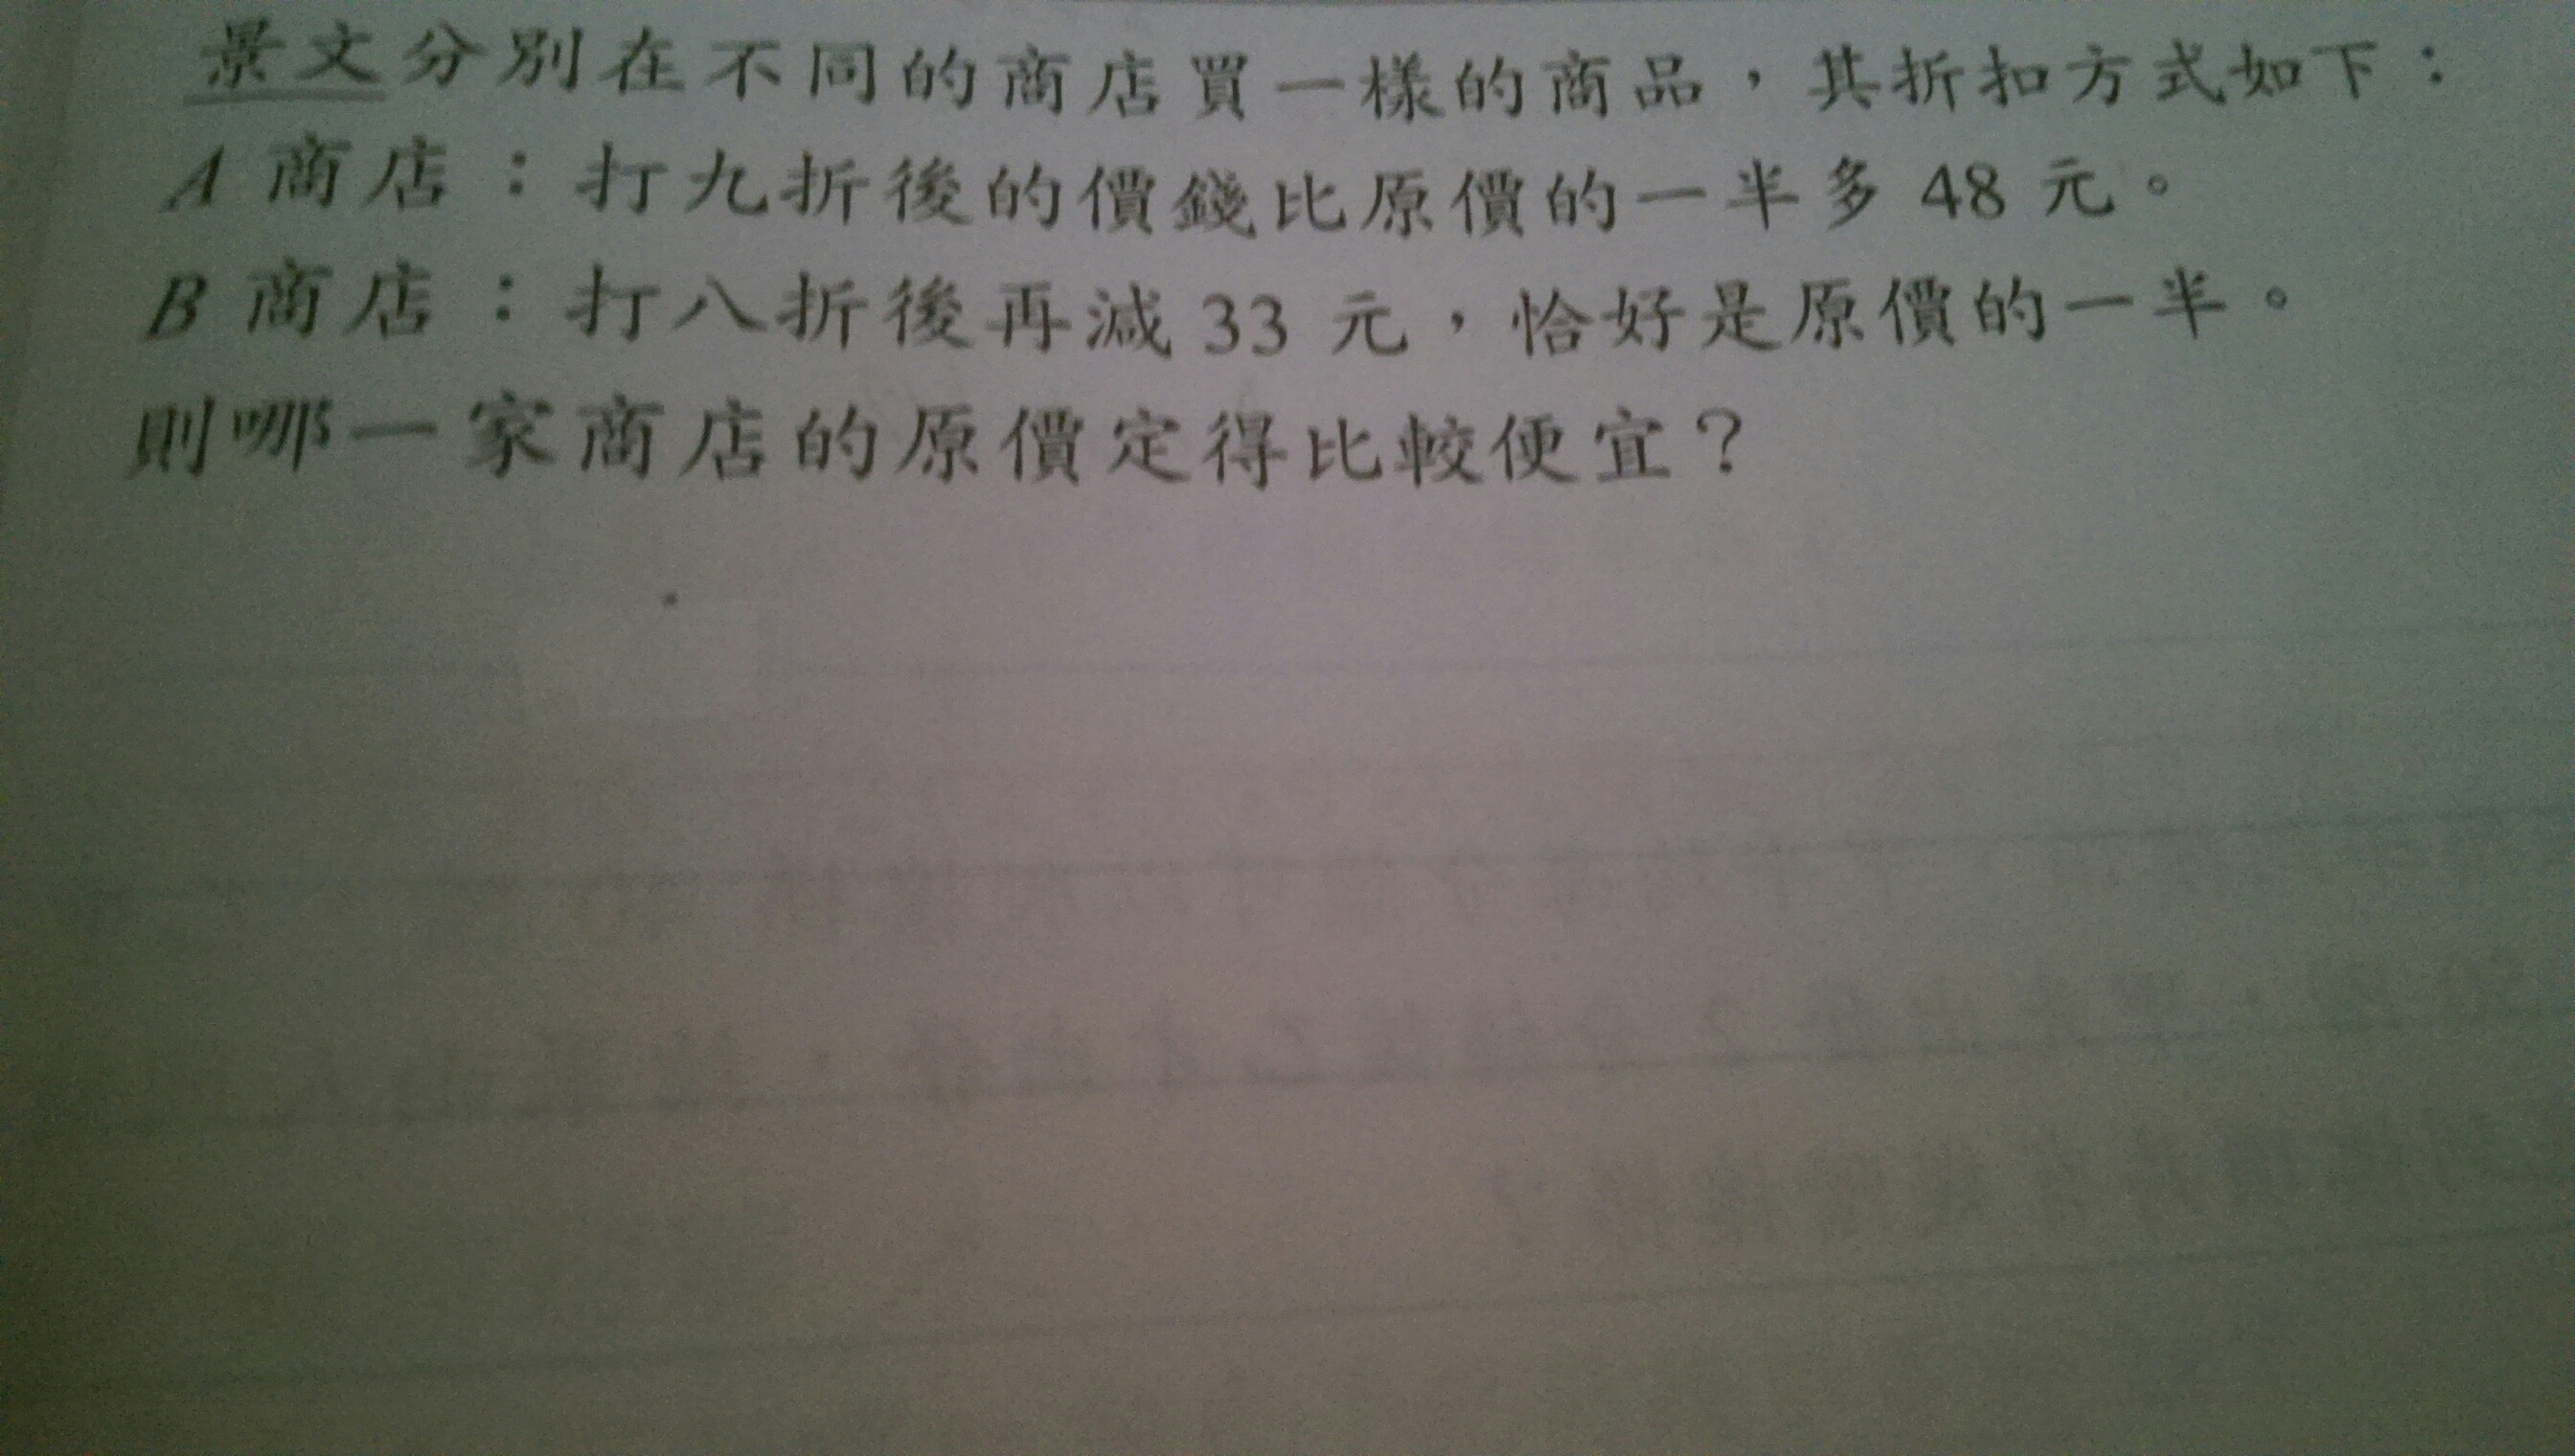 景文分別在不同的商店買一樣的商品，其折扣方式如下：
A 商店：打九折後的價錢比原價的一半多 48 元。
B 商店：打八折後再減 33 元，恰好是原價的一半。
則哪一家商店的原價定得比較便宜？